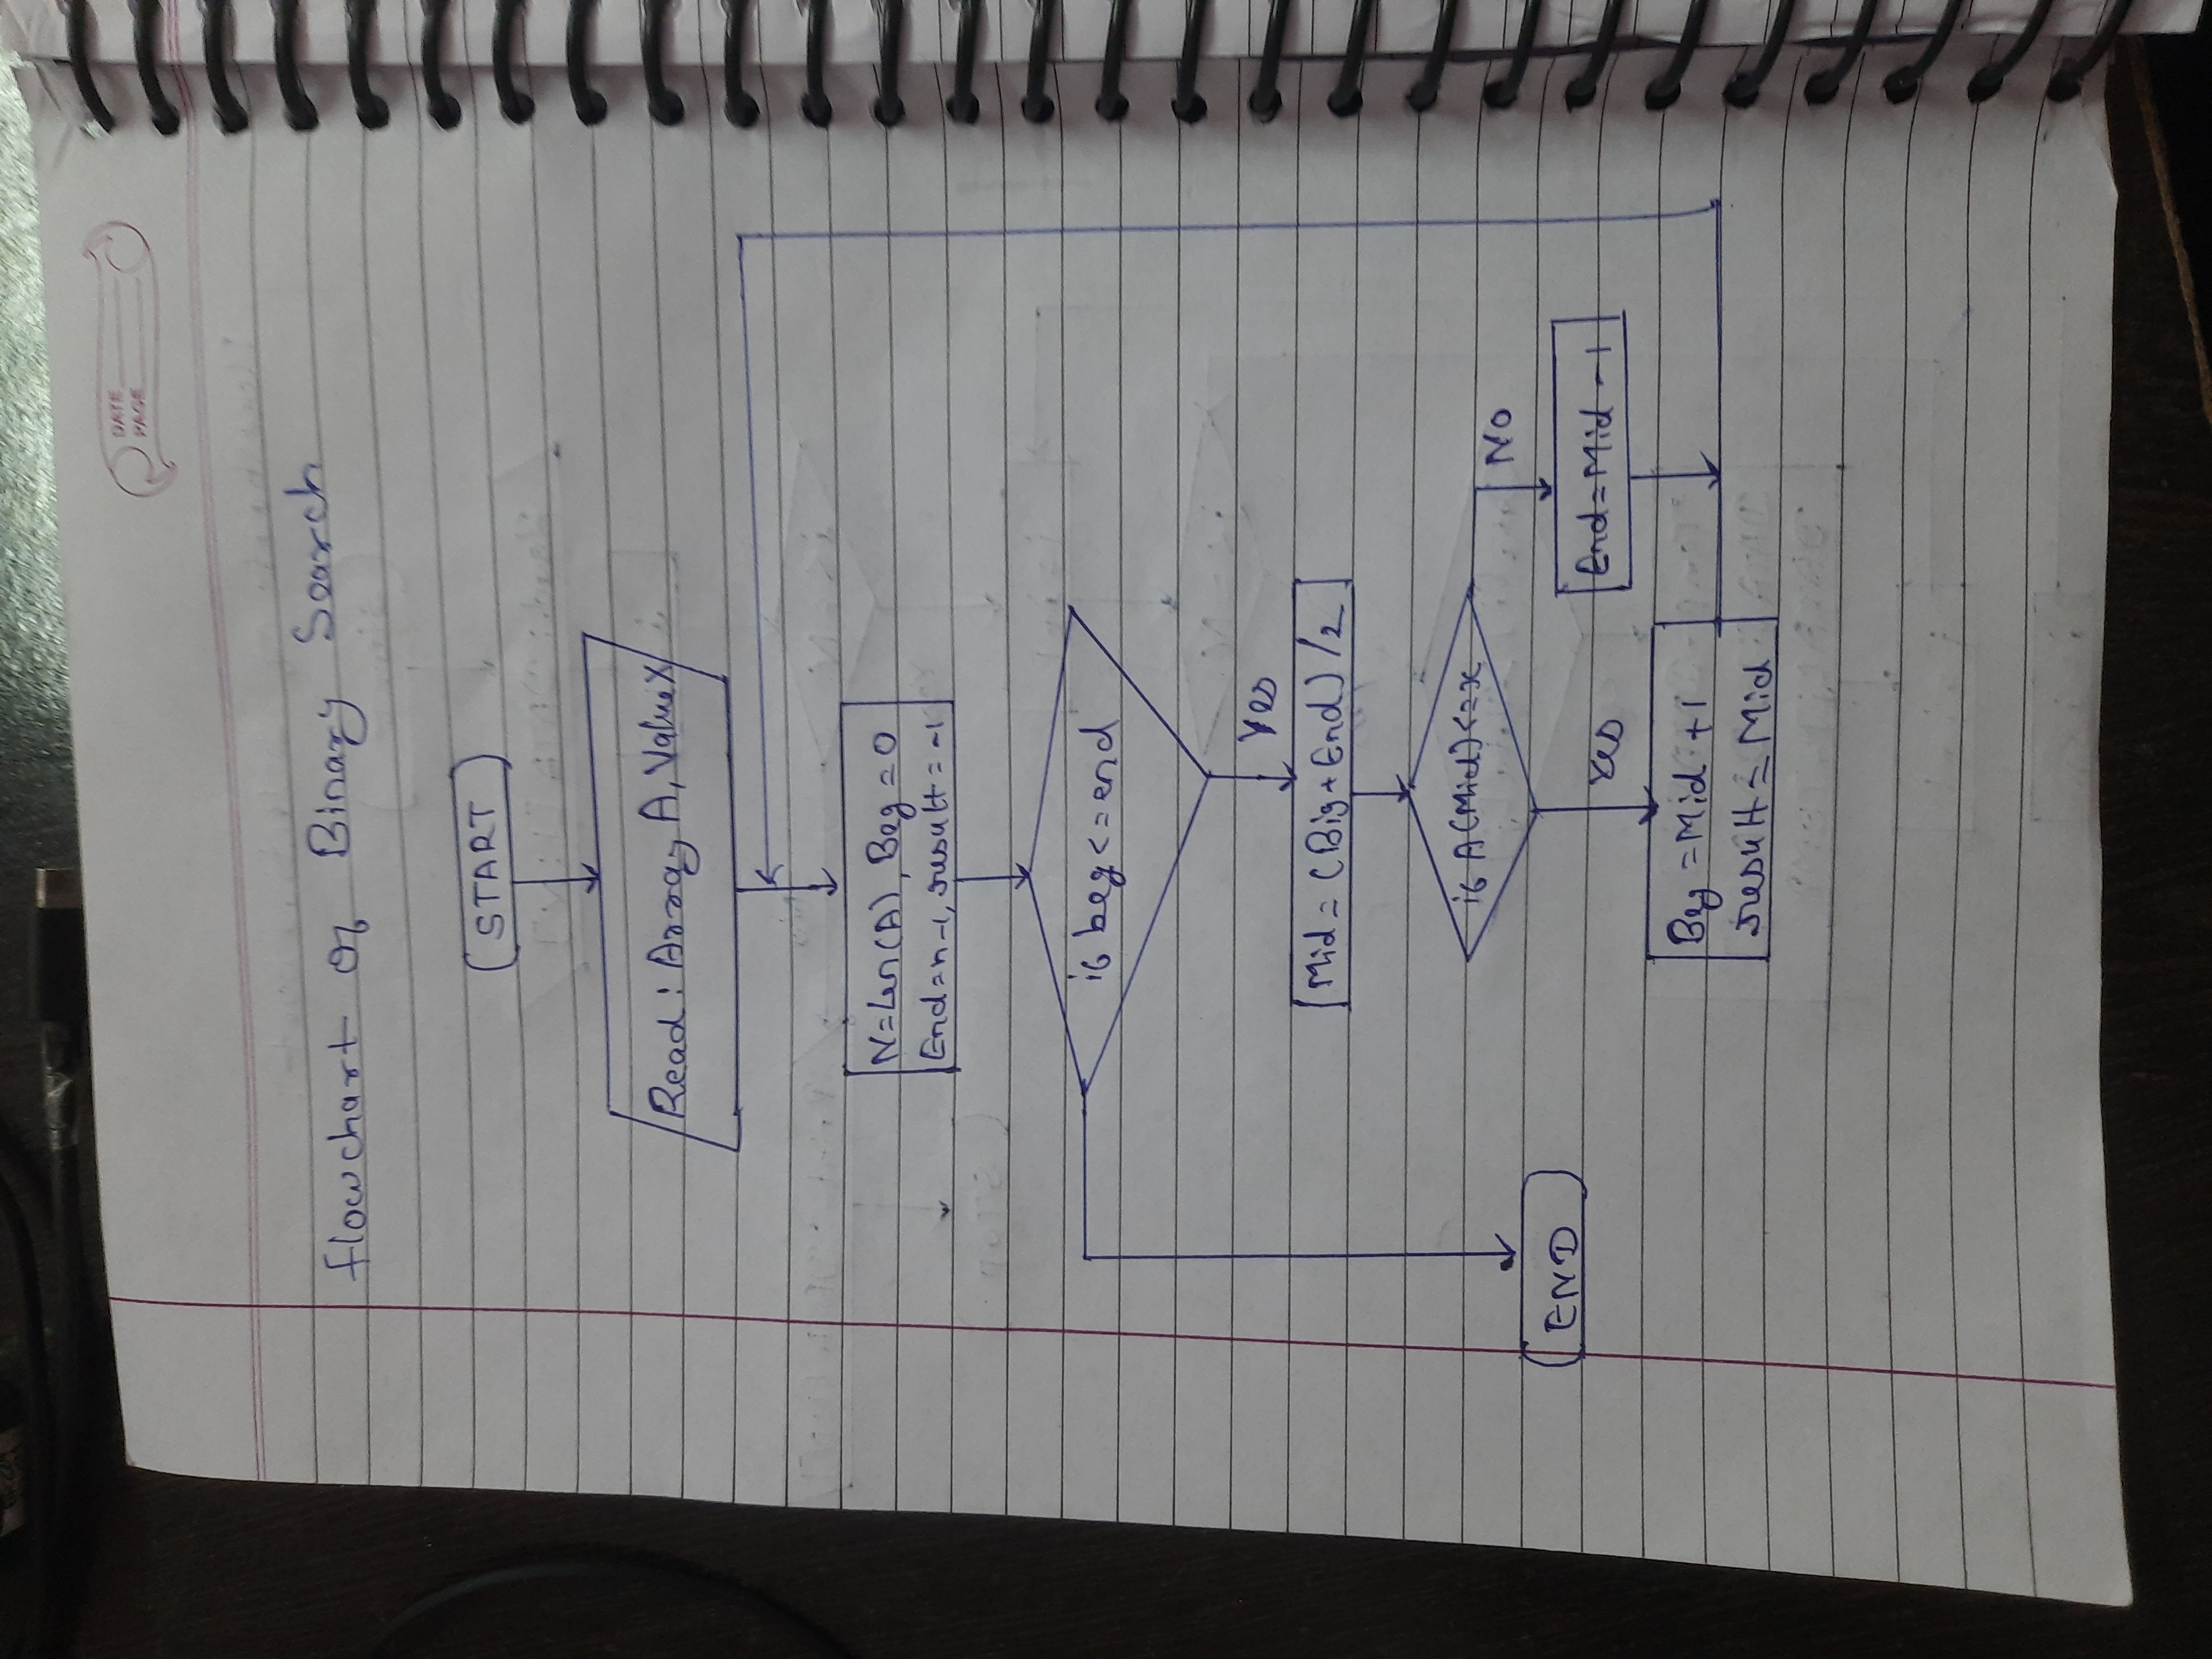 DATE
PAGE
flowchart of Binary Search
START
Read: Array A, Value X
N=Len(A), Beg=0
End=n-1, result=-1
if beg<=end
Yes
Mid=(Big+End)/2
if A(Mid)<=x
NO
END
End=Mid-1
Yes
Beg=Mid+1
result=Mid